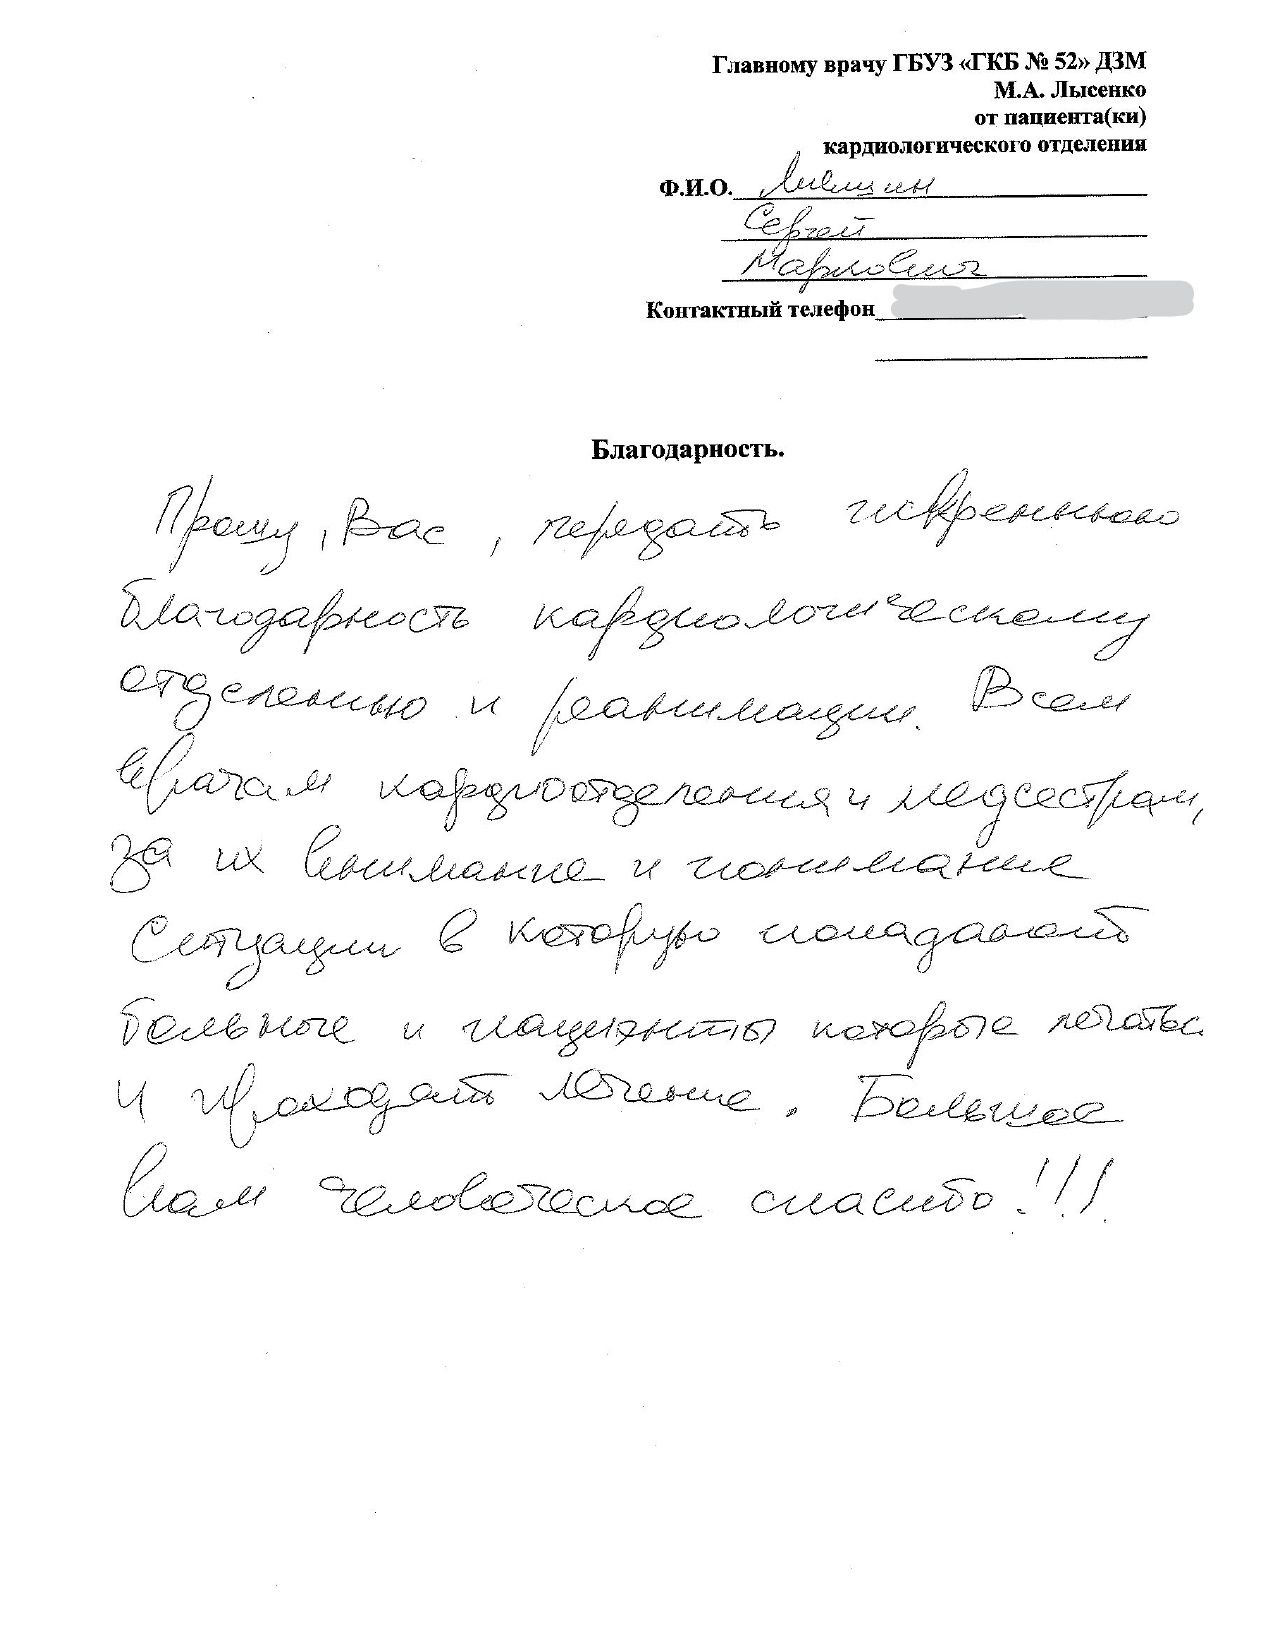 Главному врачу ГБУЗ «ГКБ № 52» ДЗМ
М.А. Лысенко
от пациента(ки)
кардиологического отделения
Ф.И.О.
Сергей
Маркович
Контактный телефон
Благодарность.
Прошу, Вас, передать искреннюю
благодарность кардиологическому
отделению и реанимации. Всем
врачам кардиоотделения и медсестрам,
за их внимание и понимание
ситуации в которую попадают
больные и пациенты которые
и проходят лечение. Большое
Вам человеческое спасибо!!!